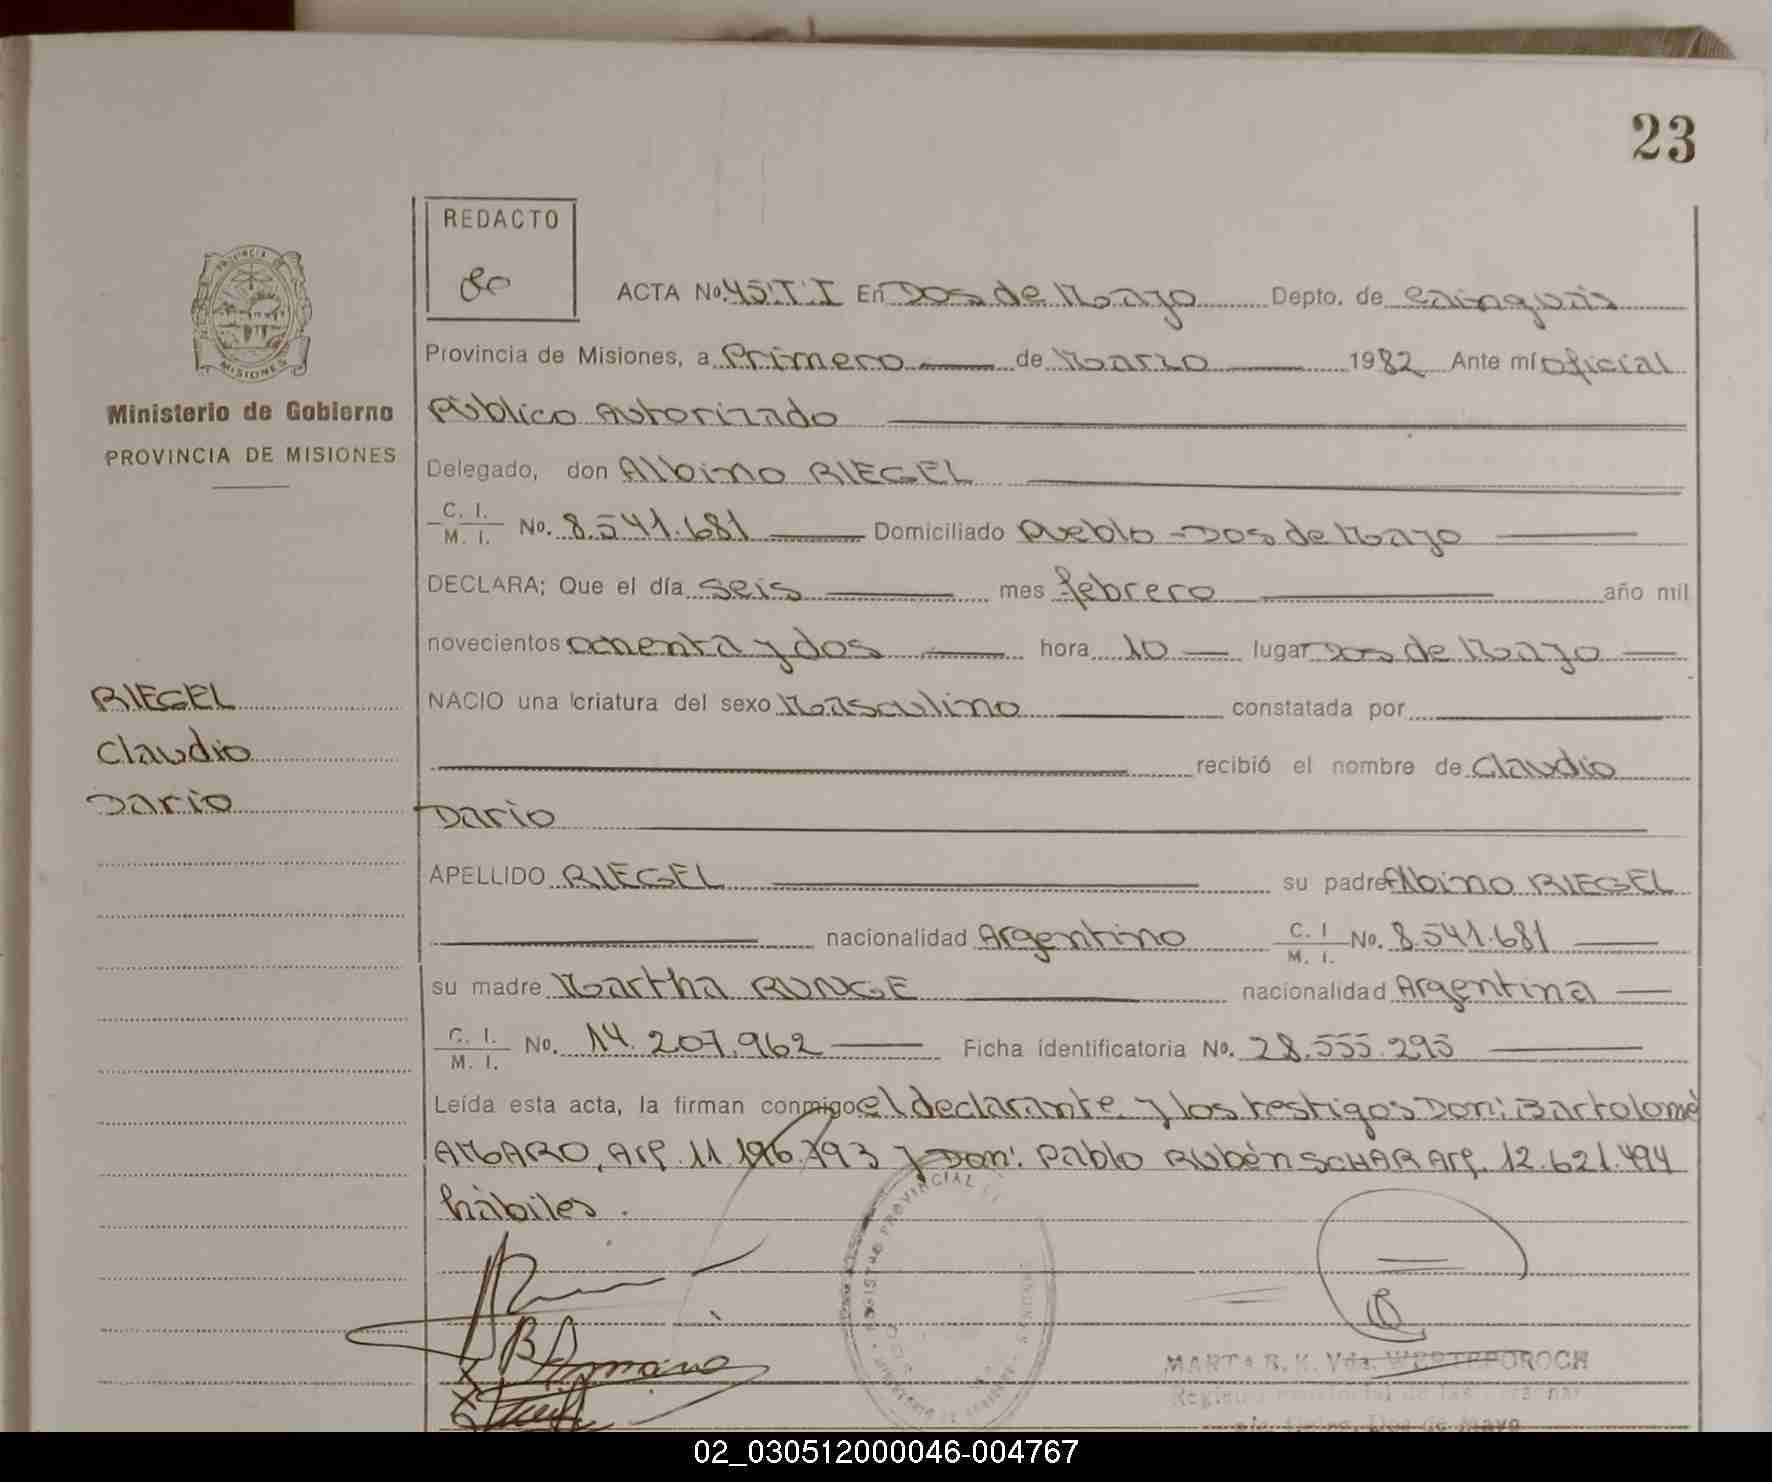 23
REDACTO
ACTA No. 45.T.I En Dos de Mayo Depto. de Cainguás
Provincia de Misiones, a Primero de Marzo 1982 Ante mí oficial
Público Autorizado
Ministerio de Gobierno
PROVINCIA DE MISIONES
Delegado, don Albino RIEGEL
C. I.
M. I. No. 8.541.681 Domiciliado Pueblo Dos de Mayo
DECLARA; Que el día seis mes febrero año mil
novecientos ochenta y dos hora 10 lugar Dos de Mayo
RIEGEL
Claudio
Dario
NACIO una criatura del sexo Masculino constatada por
recibió el nombre de Claudio
Dario
APELLIDO RIEGEL su padre Albino RIEGEL
nacionalidad Argentino C. I M. I. No. 8.541.681
su madre Martha RUNGE nacionalidad Argentina
C. I.
M. I. No. 14.207.962 Ficha identificatoria No. 28.555.295
Leída esta acta, la firman conmigo el declarante y los testigos Don: Bartolomé
AMARO, Arg. 11.196.793 y Don: Pablo Rubén SCHAR Arg. 12.621.494
hábiles.
MARTA B. K. Vda. WESTEPOROCH
02_030512000046-004767